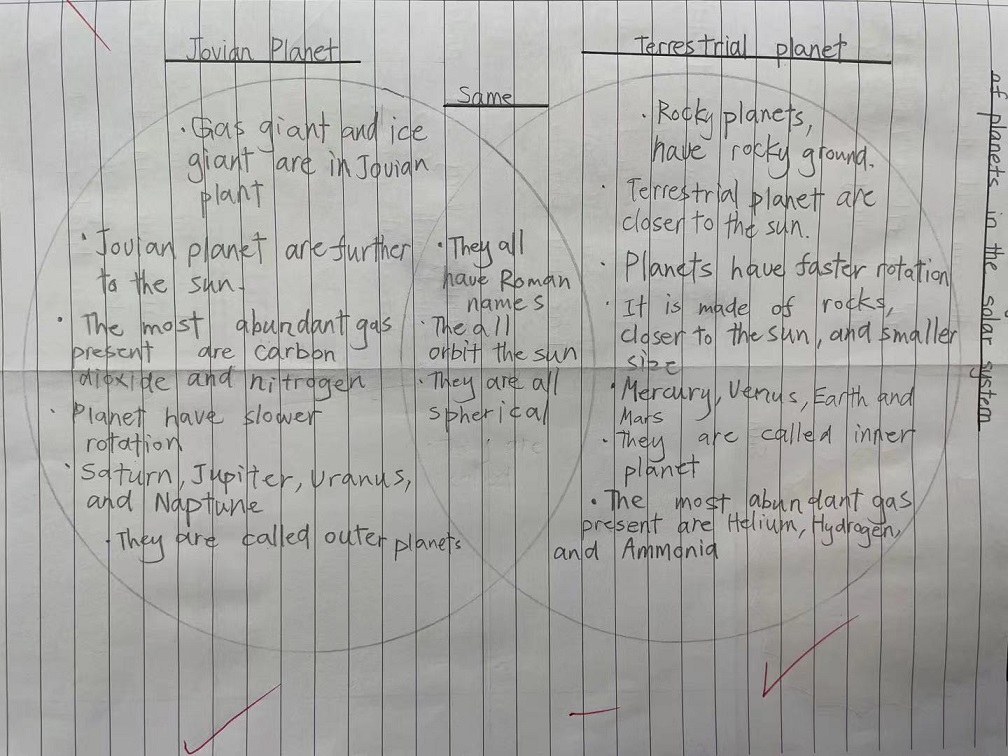 Jovian Planet
· Gas giant and ice
giant are in Jovian
plant
· Jovian planet are further
to the sun.
· The most abundant gas
present are carbon
dioxide and nitrogen
· Planet have slower
rotation
· Saturn, Jupiter, Uranus,
and Naptune
· They are called outer planets
Same
· They all
have Roman
names
· The all
orbit the sun
· They are all
spherical
Terrestrial planet
· Rocky planets,
have rocky ground.
· Terrestrial planet are
closer to the sun.
· Planets have faster rotation
· It is made of rocks,
closer to the sun, and smaller
size
· Mercury, Venus, Earth and
Mars
· They are called inner
planet
· The most abundant gas
present are Helium, Hydrogen,
and Ammonia
of planets in the solar system